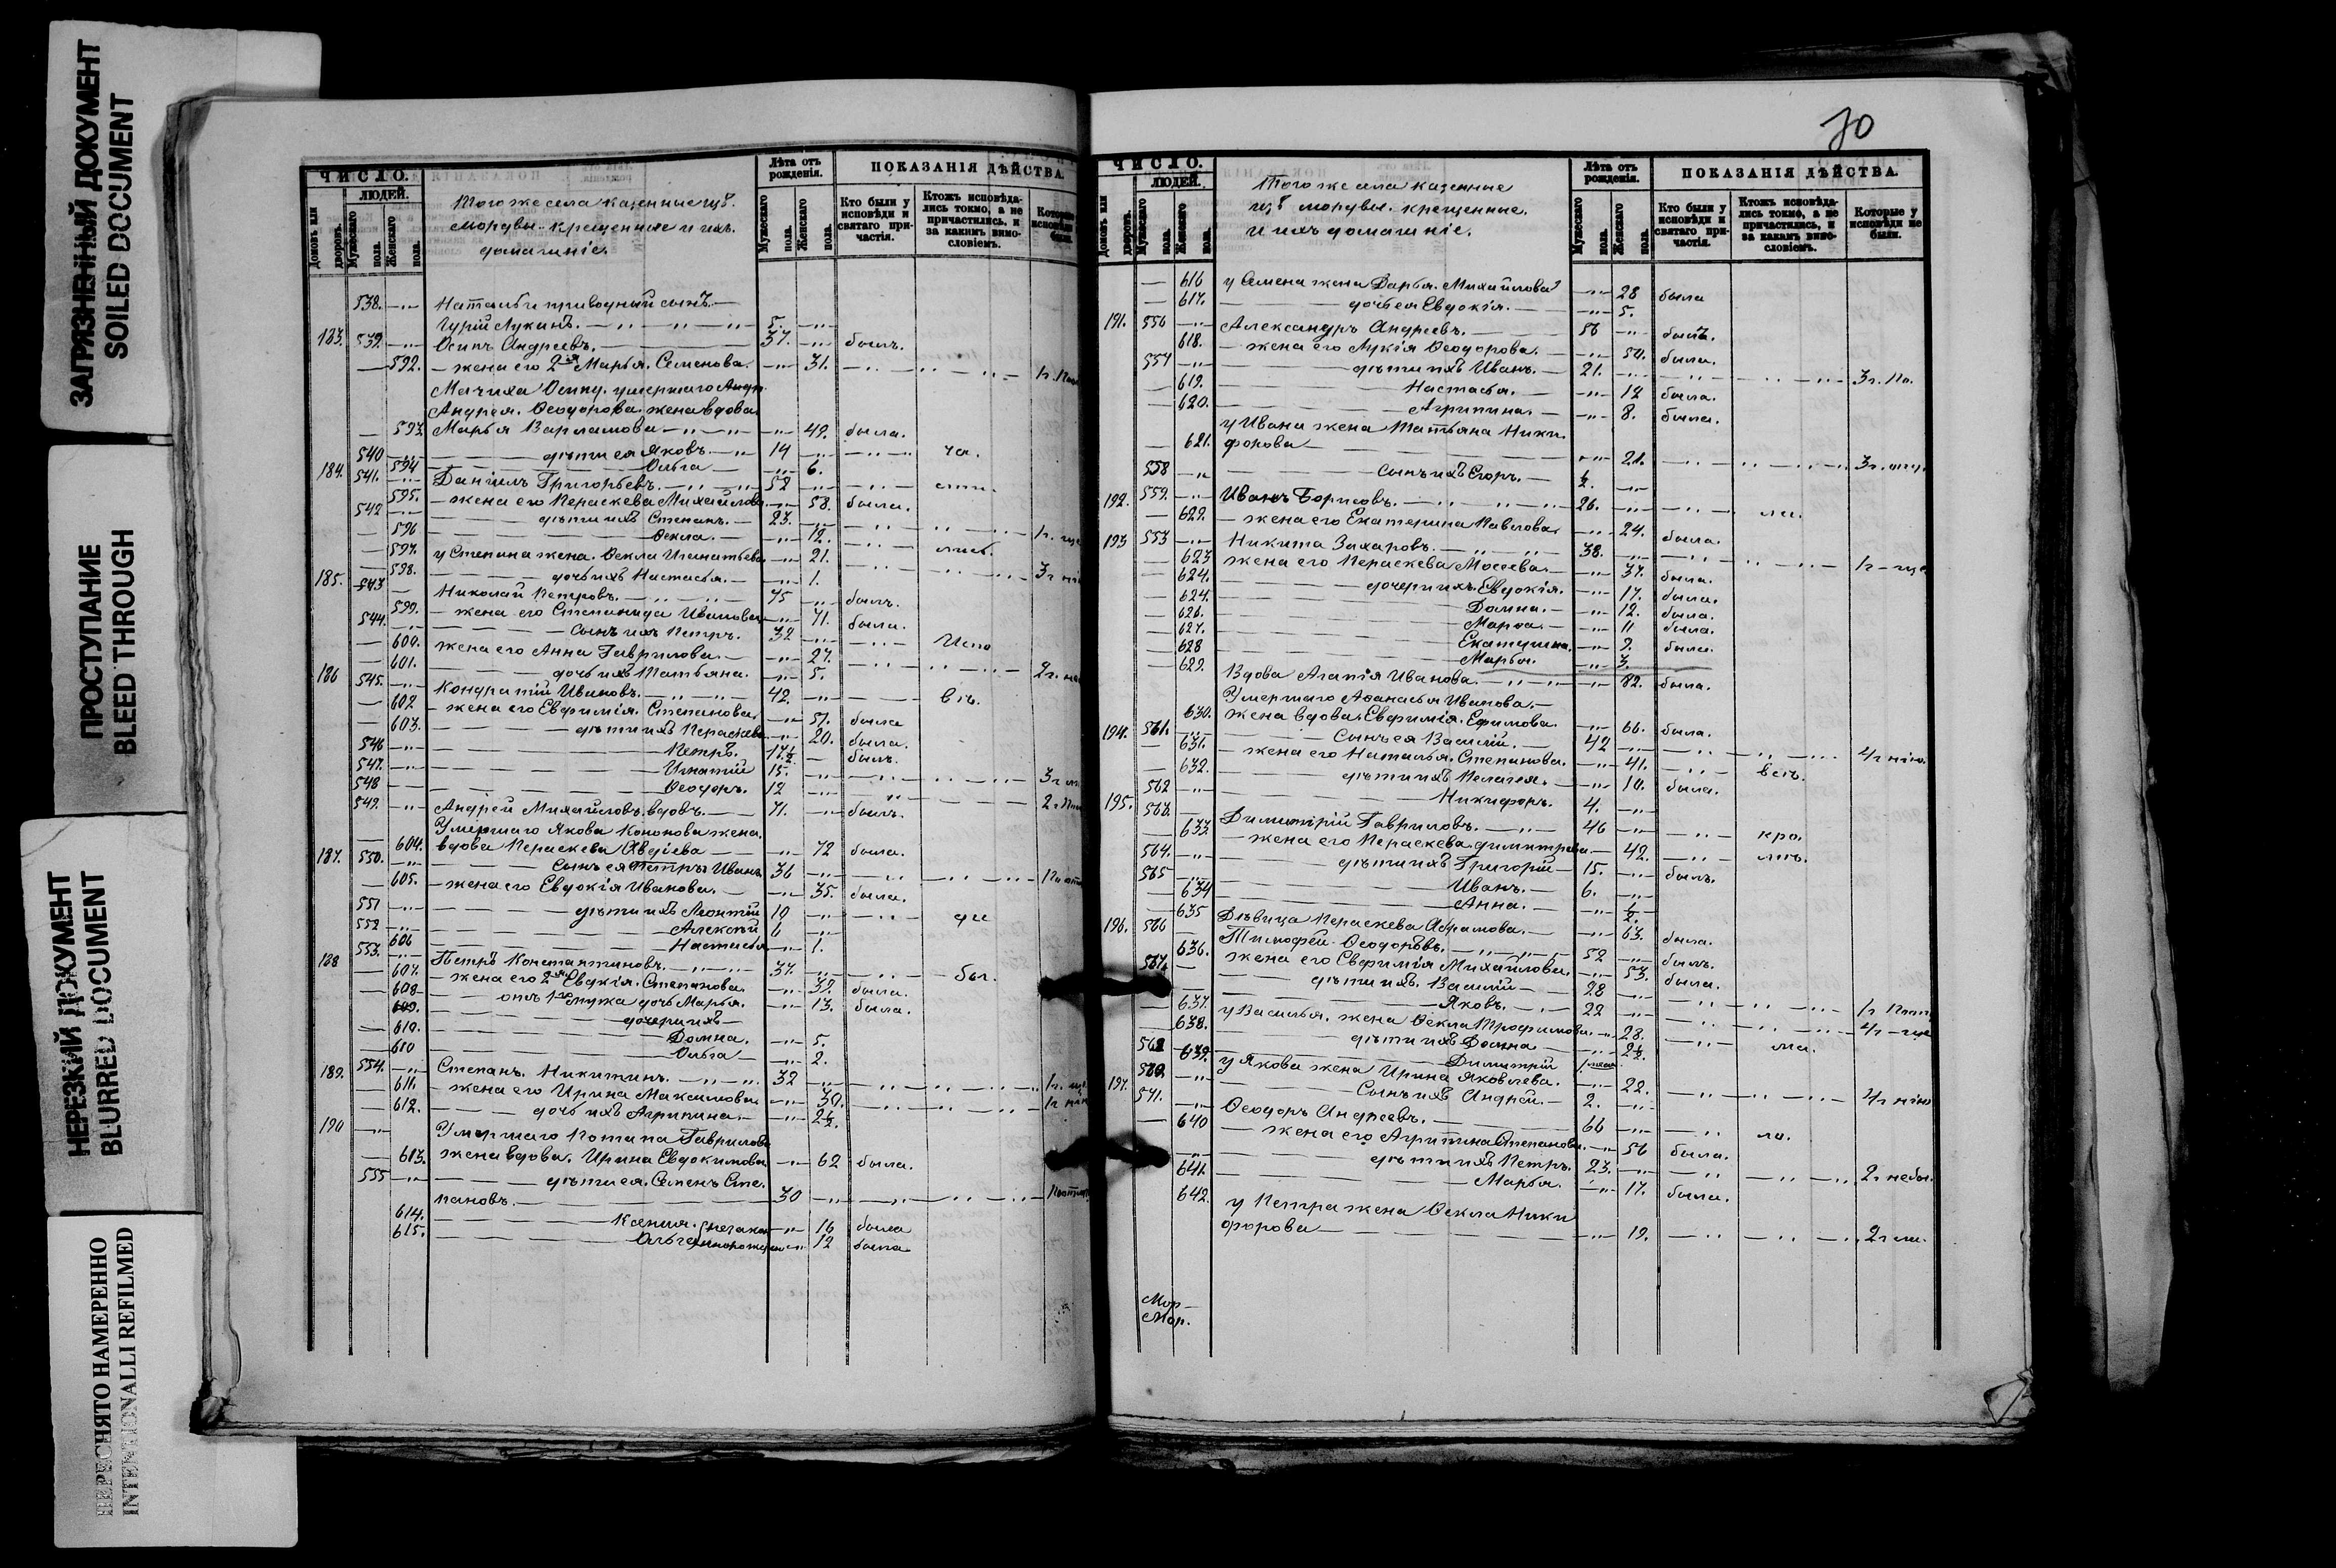 ЗАГРЯЗНЕННЫЙ ДОКУМЕНТ
SOILED DOCUMENT
ПРОСТУПАНИЕ
BLEED THROUGH
НЕРЕЗКИЙ ДОКУМЕНТ
BLURRED DOCUMENT
ПЕРЕСНЯТО НАМЕРЕННО
INTENTIONALLI REFILMED
ЧИСЛО.
ЛЮДЕЙ.
Домовъ или дворовъ.
Мужескаго пола.
Женскаго пола.
Того же села казенные изъ
мордвы крещенные и ихъ
домашніе.
Лѣта отъ рожденія.
Мужескаго пола.
Женскаго пола.
ПОКАЗАНІЯ ДѢЙСТВА.
Кто были у исповѣди и святаго причастія.
Ктожъ исповѣдались токмо, а не причастились, и за какимъ винословіемъ.
538. Натальи приводный сынъ
Гурій Лукинъ. 5.
183. 539. Осипъ Андреевъ. 37. былъ.
592. жена его 2я Марья Семенова. 31.
Мачиха Осипу, умершаго
Андрея Ѳеодорова жена вдова
593. Марья Варламова 49. была.
540 дѣти ея Яковъ 14
594 Ольга 6.
184. 541. Даніилъ Григорьевъ. 52
595. жена его Параскева Михайлова 58. была.
542 дѣти ихъ Степанъ. 23.
596 Ѳекла. 12.
597. у Степана жена Ѳекла Игнатьева 21.
598. дочь ихъ Настасья. 1.
185. 543 Николай Петровъ. 75 былъ.
599. жена его Степанида Иванова 71. была.
544. сынъ ихъ Петръ. 32
600. жена его Анна Гаврилова. 27.
601. дочь ихъ Татьяна. 5.
186 545. Кондратій Ивановъ. 42.
602 жена его Евфимія Степанова. 51. была
603. дѣти ихъ Параскева 20. была.
546 Петръ. 17½ былъ.
547. Игнатій 15.
548 Ѳеодоръ. 12
549. Андрей Михайловъ вдовъ. 71. былъ.
Умершаго Якова Кононова жена
604. вдова Параскева Авдіева 72 была.
187. 550. Сынъ ея Иванъ 36
605. жена его Евдокія Иванова. 35. была.
551 дѣти ихъ Леонтій 10
552 Алексѣй 6
606 Настасья 1.
188 553. Петръ Константиновъ. 37.
607. жена его 2я Евдокія Степанова. 39. была.
608 отъ 1го мужа дочь Марья. 13. была.
609. дочери ихъ
610. Домна. 5.
610 Ольга 2.
189. 554. Степанъ Никитинъ. 32
611. жена его Ирина Максимова 30.
612. дочь ихъ Агрипина. 2½.
190 Умершаго Потапа Гаврилова
613. жена вдова Ирина Евдокимова 62 была.
555 дѣти ея Семенъ Сте-
пановъ. 30
614. Ксенія. 16 была
615. Ольга 12 была
70
ЧИСЛО.
ЛЮДЕЙ.
Домовъ или дворовъ.
Мужескаго пола.
Женскаго пола.
Того же села казенные
изъ мордвы крещенные
и ихъ домашніе.
Лѣта отъ рожденія.
Мужескаго пола.
Женскаго пола.
ПОКАЗАНІЯ ДѢЙСТВА.
Кто были у исповѣди и святаго причастія.
Ктожъ исповѣдались токмо, а не причастились, и за какимъ винословіемъ.
Которые у исповѣди не были.
616 у Семена жена Дарья Михайлова 28 была
617. дочь ея Евдокія. 5.
191. 556 Александръ Андреевъ. 56 былъ.
618. жена его Лукія Ѳеодорова. 50. была.
557 дѣти ихъ Иванъ. 21.
619. Настасья. 12 была.
620. Агрипина. 8. была.
у Ивана жена Татьяна Ники-
621. форова 21.
558 сынъ ихъ Егоръ. ½.
192. 559. Иванъ Борисовъ. 26.
622. жена его Екатерина Павлова 24. была.
193 553 Никита Захаровъ. 38.
623 жена его Параскева Мосеева. 37. была.
624. дочери ихъ Евдокія. 17. была.
624. Домна. 12. была.
626. Марѳа. 11 была.
627. Екатерина. 9. была.
628 Марья. 3.
629. Вдова Агапія Иванова. 82. была.
Умершаго Аѳанасья Иванова
630. жена вдова Евфимія Ефимова. 66. была.
194. 561. Сынъ ея Василій. 42
631. жена его Наталья Степанова. 41.
632. дѣти ихъ Пелагея. 10. была.
562 Никифоръ. 4.
195. 563. Димитрій Гавриловъ. 46
633. жена его Параскева Димитрева 42.
564. дѣти ихъ Григорій 15. былъ.
565 Иванъ. 6.
634 Анна. ½.
635 Дѣвица Параскева Абрамова. 63. была.
196. 566 Тимофей Ѳеодоровъ. 52 былъ.
636. жена его Евфимія Михайлова. 53. была.
567. дѣти ихъ Василій 28
Яковъ. 22
637. у Василья жена Ѳекла Трофимова. 28.
638. дѣти ихъ Домна 2½.
Димитрій
639. у Якова жена Ирина Яковлева. 22.
Сынъ ихъ Андрей. 2.
197. 571. Ѳеодоръ Андреевъ. 66
640 жена его Агрипина Степанова. 56 была.
дѣти ихъ Петръ. 23.
641. Марья. 17. была.
у Петра жена Ѳекла Ники
642. форова 19.